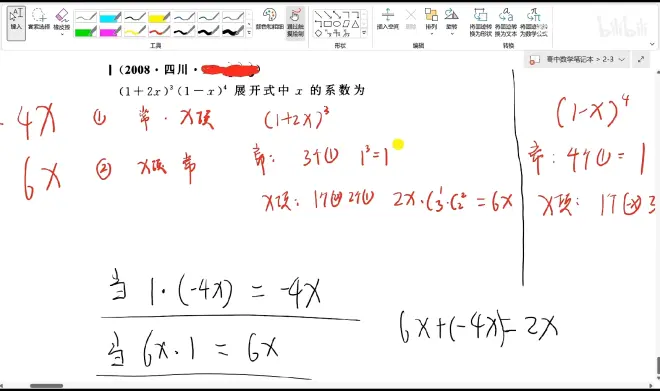 输入 套索选择 橡皮擦
颜色和粗细 通过触摸绘制
插入空间 删除 排列 旋转
将墨迹转换为形状 将墨迹转换为文本 将墨迹转换为数学公式
工具 形状 编辑 转换
bilibili
哥中数学笔记本 > 2-3
(2008·四川·
(1+2x)³(1-x)⁴ 展开式中 x 的系数为
-4x ① 常·x项 (1+2x)³
6x ② x项 常 常: 3个① 1³=1
x项: 1个2x 2个① 2x·C₃¹·C₂² = 6x
(1-x)⁴
常: 4个① = 1
x项: 1个(-x) 3
当 1·(-4x) = -4x
当 6x·1 = 6x
6x+(-4x)=2x